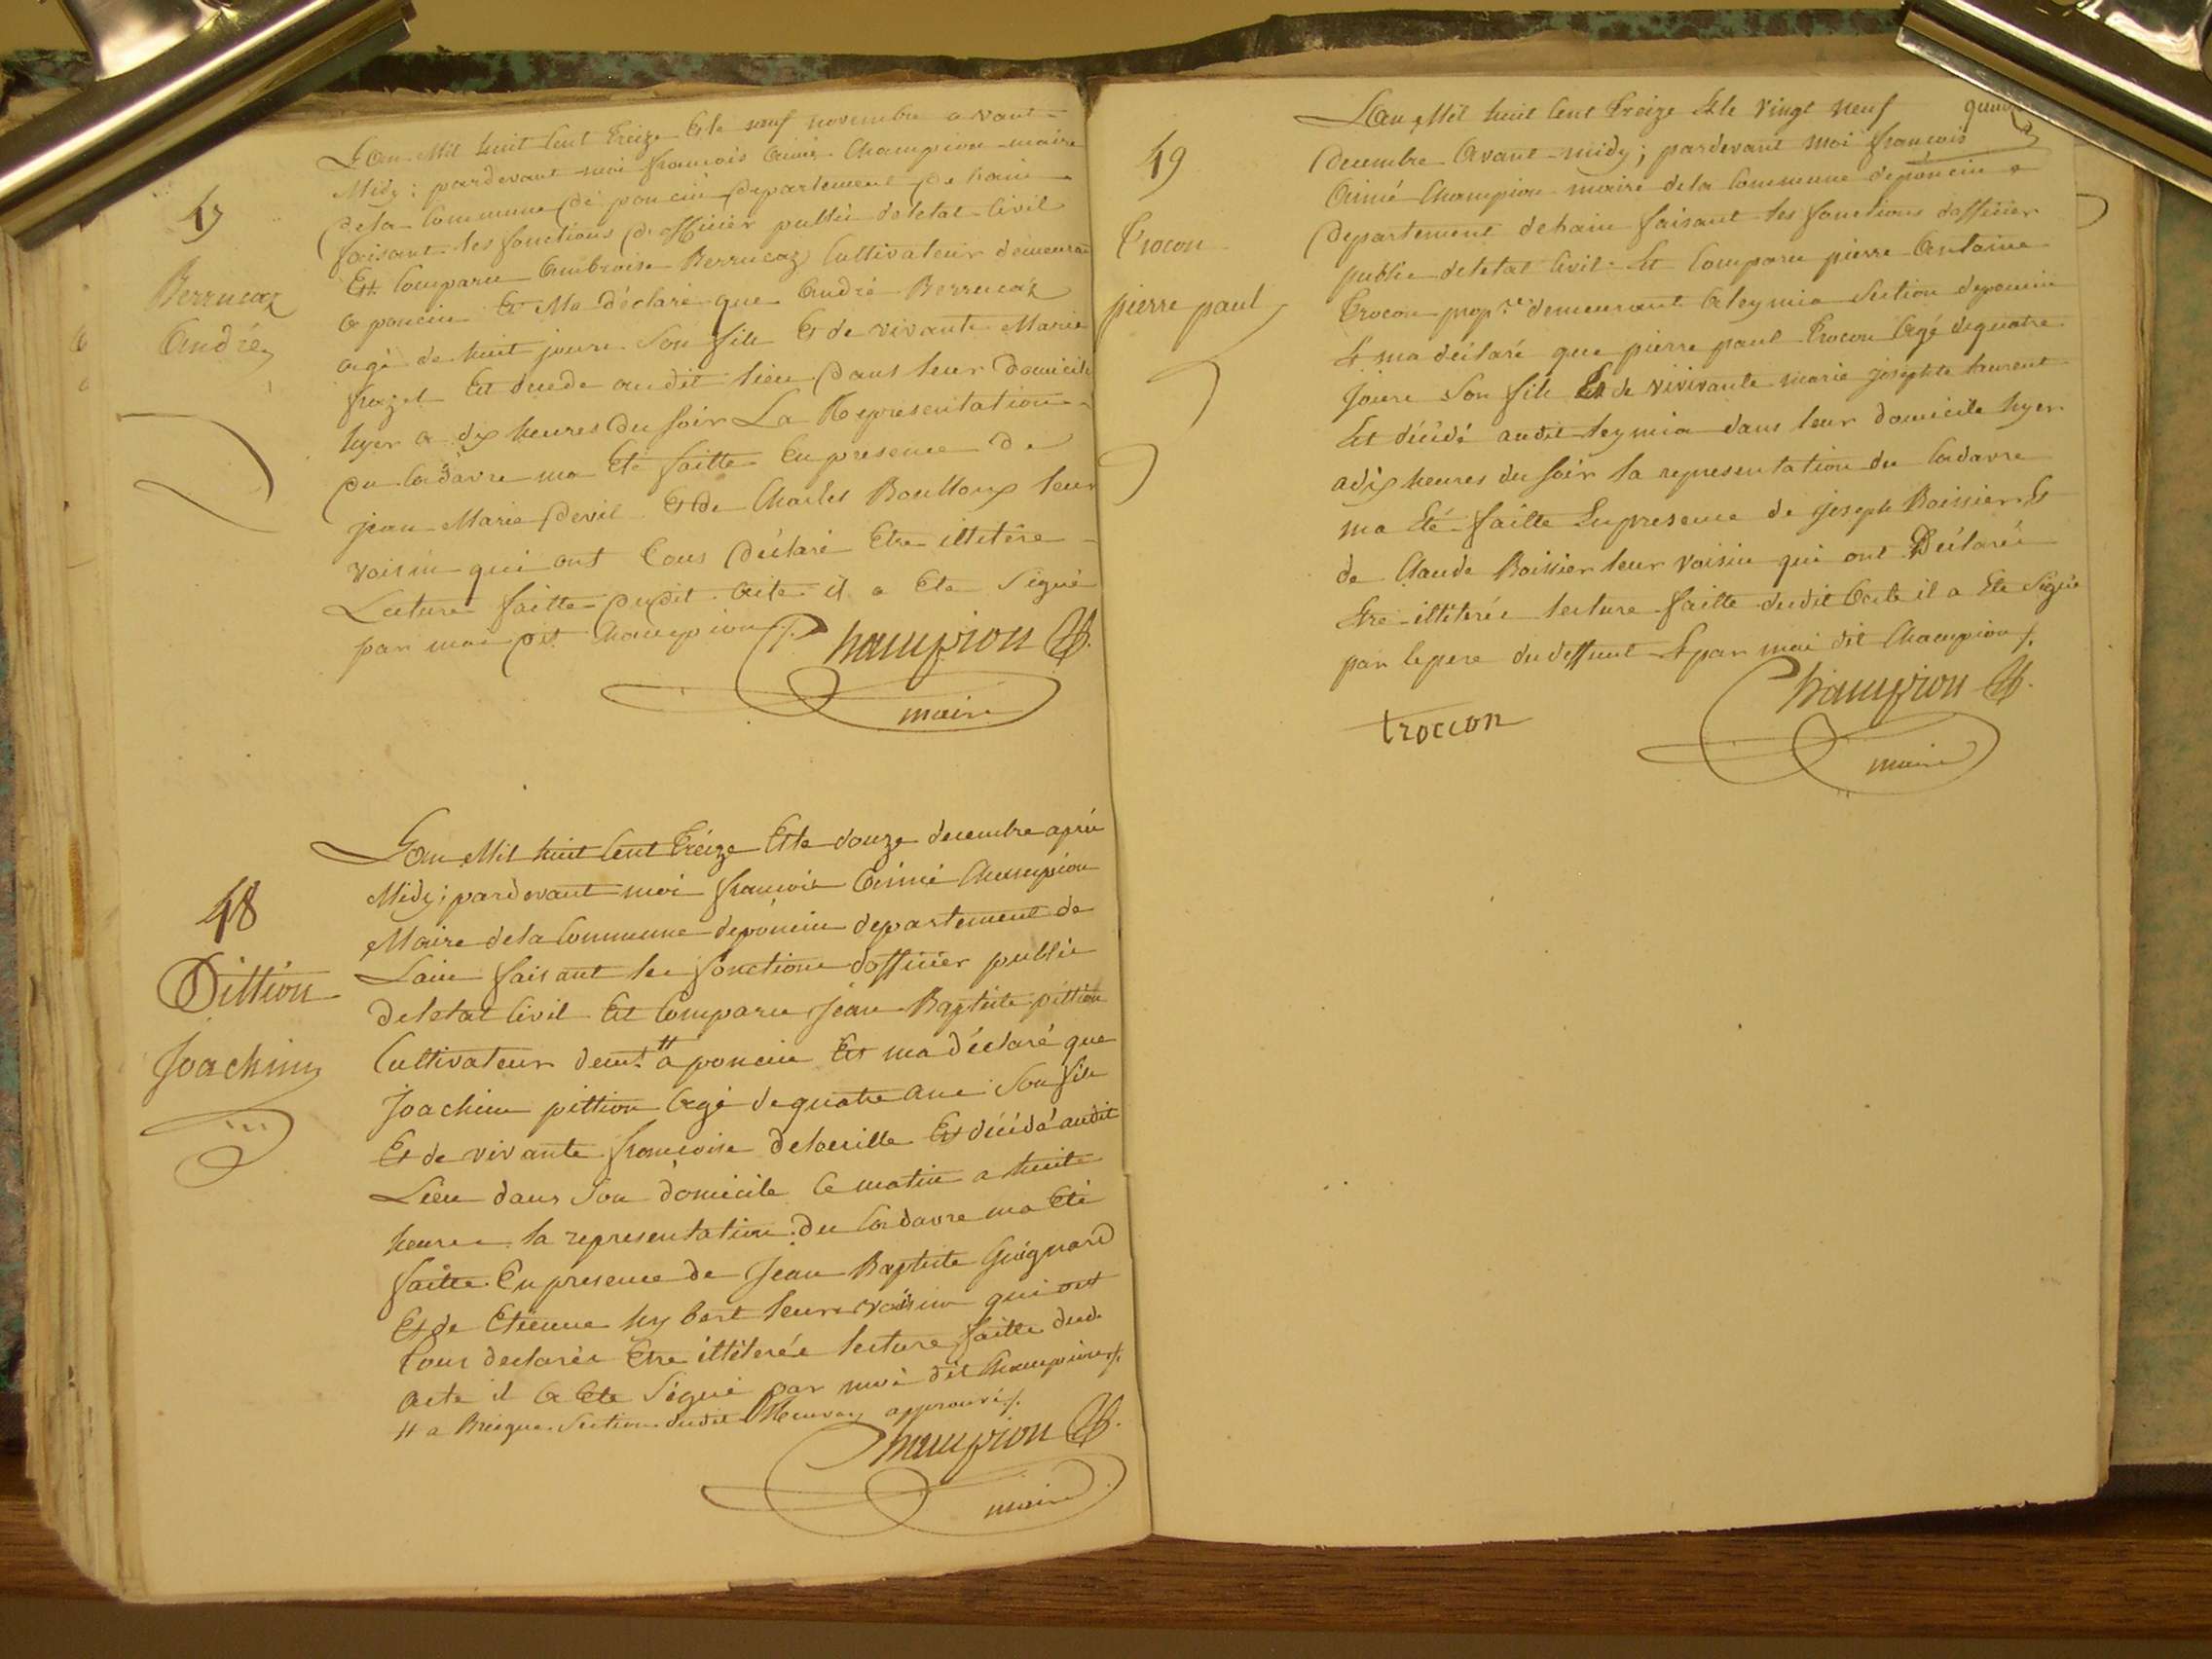 47
Berrucaz
André
L'an Mil huit Cent Treize Et le neuf novembre avant
Midy; pardevant moi françois Aimé Champion maire
De la Commune De poncin Departement De l'ain
faisant les fonctions D'officier public de letat Civil
Est Comparu Ambroise Berrucaz Cultivateur demeurant
a poncin Et Ma déclaré que André Berrucaz
agé de huit jours Son fils Et de vivante Marie
Est decede audit lieu Dans leur Domicile
hyer a dix heures Du Soir La Representation
Du Cadavre ma Eté faitte En presence De
jean Marie Devil Et de Charles Boulloux leur
voisin qui ont Tous Déclaré Etre illitere
Lecture faitte Dudit acte il a Ete Signé
par moi Dit Champion
Champion
maire
48
Pittion
Joachim
L'an Mil huit Cent Treize Et le douze decembre après
Midy; pardevant moi francois Aimé Champion
Maire de la Commune de poncin departement de
Lain faisant les fonctions dofficier public
De letat Civil Est Comparu Jean Baptiste pittion
Cultivateur demt # a poncin Et ma déclaré que
Joachim pittion Agé de quatre ans Son fils
Et de vivante françoise Est décédé audit
Lieu dans Son domicile Ce matin a huit
heures la representation du Cadavre ma Eté
faitte En presence de Jean Baptiste Guignard
Et de Etienne hybert leurs voisin qui ont
Tous declarés Etre illiterés lecture faitte dud.
Acte il a Ete Signé par moi dit Champion
# a Section dudit approuvé
Champion
maire
49
Trocon
pierre paul
L'an Mil huit Cent Treize Et le vingt neuf
Decembre Avant midy; pardevant moi françois
Aimé Champion maire de la Commune de poncin
Departement de lain faisant les fonctions dofficier
public de letat Civil Est Comparu pierre Antoine
Trocon propre demeurant a leymia Section de poncin
Et ma déclaré que pierre paul Trocon Agé de quatre
jours Son fils Et de vivivante marie josephte
Est décédé audit leymia dans leur domicile hyer
a dix heures du Soir la representation du Cadavre
ma Eté faitte En presence de joseph Boissier Et
de Claude Boissier leur voisin qui ont Déclarés
Etre illiterés lecture faitte dudit Acte il a Ete Signé
par le pere du deffunt Et par moi dit Champion
troccon
Champion
maire